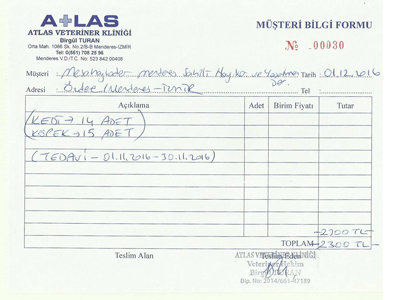 ATLAS
ATLAS VETERİNER KLİNİĞİ
Birgül TURAN
Orta Mah. 1066 Sk. No.2/B-B Menderes-İZMİR
Tel: 0(551) 708 25 96
Menderes V.D./T.C. No: 523 842 00408
MÜŞTERİ BİLGİ FORMU
№ .00030
Müşteri : Menderes Sahilli Der. Tarih : 01.12.2016
Adresi : Menderes-İZMİR Tel :
Açıklama Adet Birim Fiyatı Tutar
(KEDİ → 14 ADET)
(KÖPEK → 15 ADET)
(TEDAVİ - 01.11.2016 - 30.11.2016)
TOPLAM 2300 TL
Teslim Alan Teslim Eden
ATLAS VETERİNER KLİNİĞİ
Veteriner Hekim
Birgül TURAN
Dip. No: 2014/661-47189